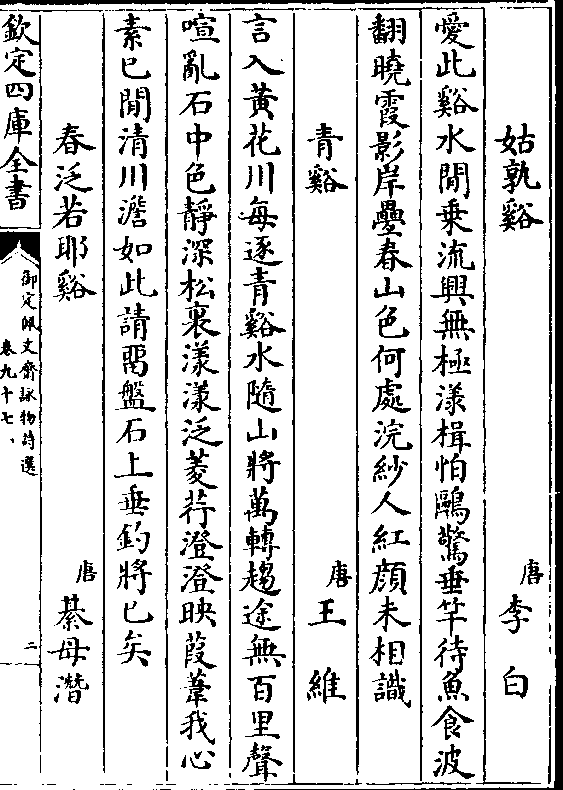 姑孰谿 唐 李白
愛此谿水閒乗流興無極漾楫怕鷗驚垂竿待魚食波
翻曉霞影岸疊春山色何處浣紗人紅顔未相識
青谿 唐 王維
言入黃花川每逐青谿水隨山將萬轉趨途無百里聲
喧亂石中色靜深松裏漾漾泛菱荇澄澄映葭葦我心
素已閒清川澹如此請留盤石上垂釣將已矣
春泛若耶谿 唐 綦母潛
欽定四庫全書
御定佩文齋詠物詩選
卷九十七
二